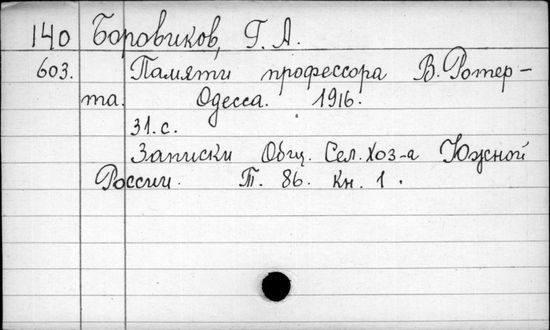 140 Боровиков, Г. А.
603. Памяти профессора В. Ротер-
та. Одесса. 1916.
31.с.
Записки Общ. Сел. Хоз-а Южной
России. Т. 86. Кн. 1.